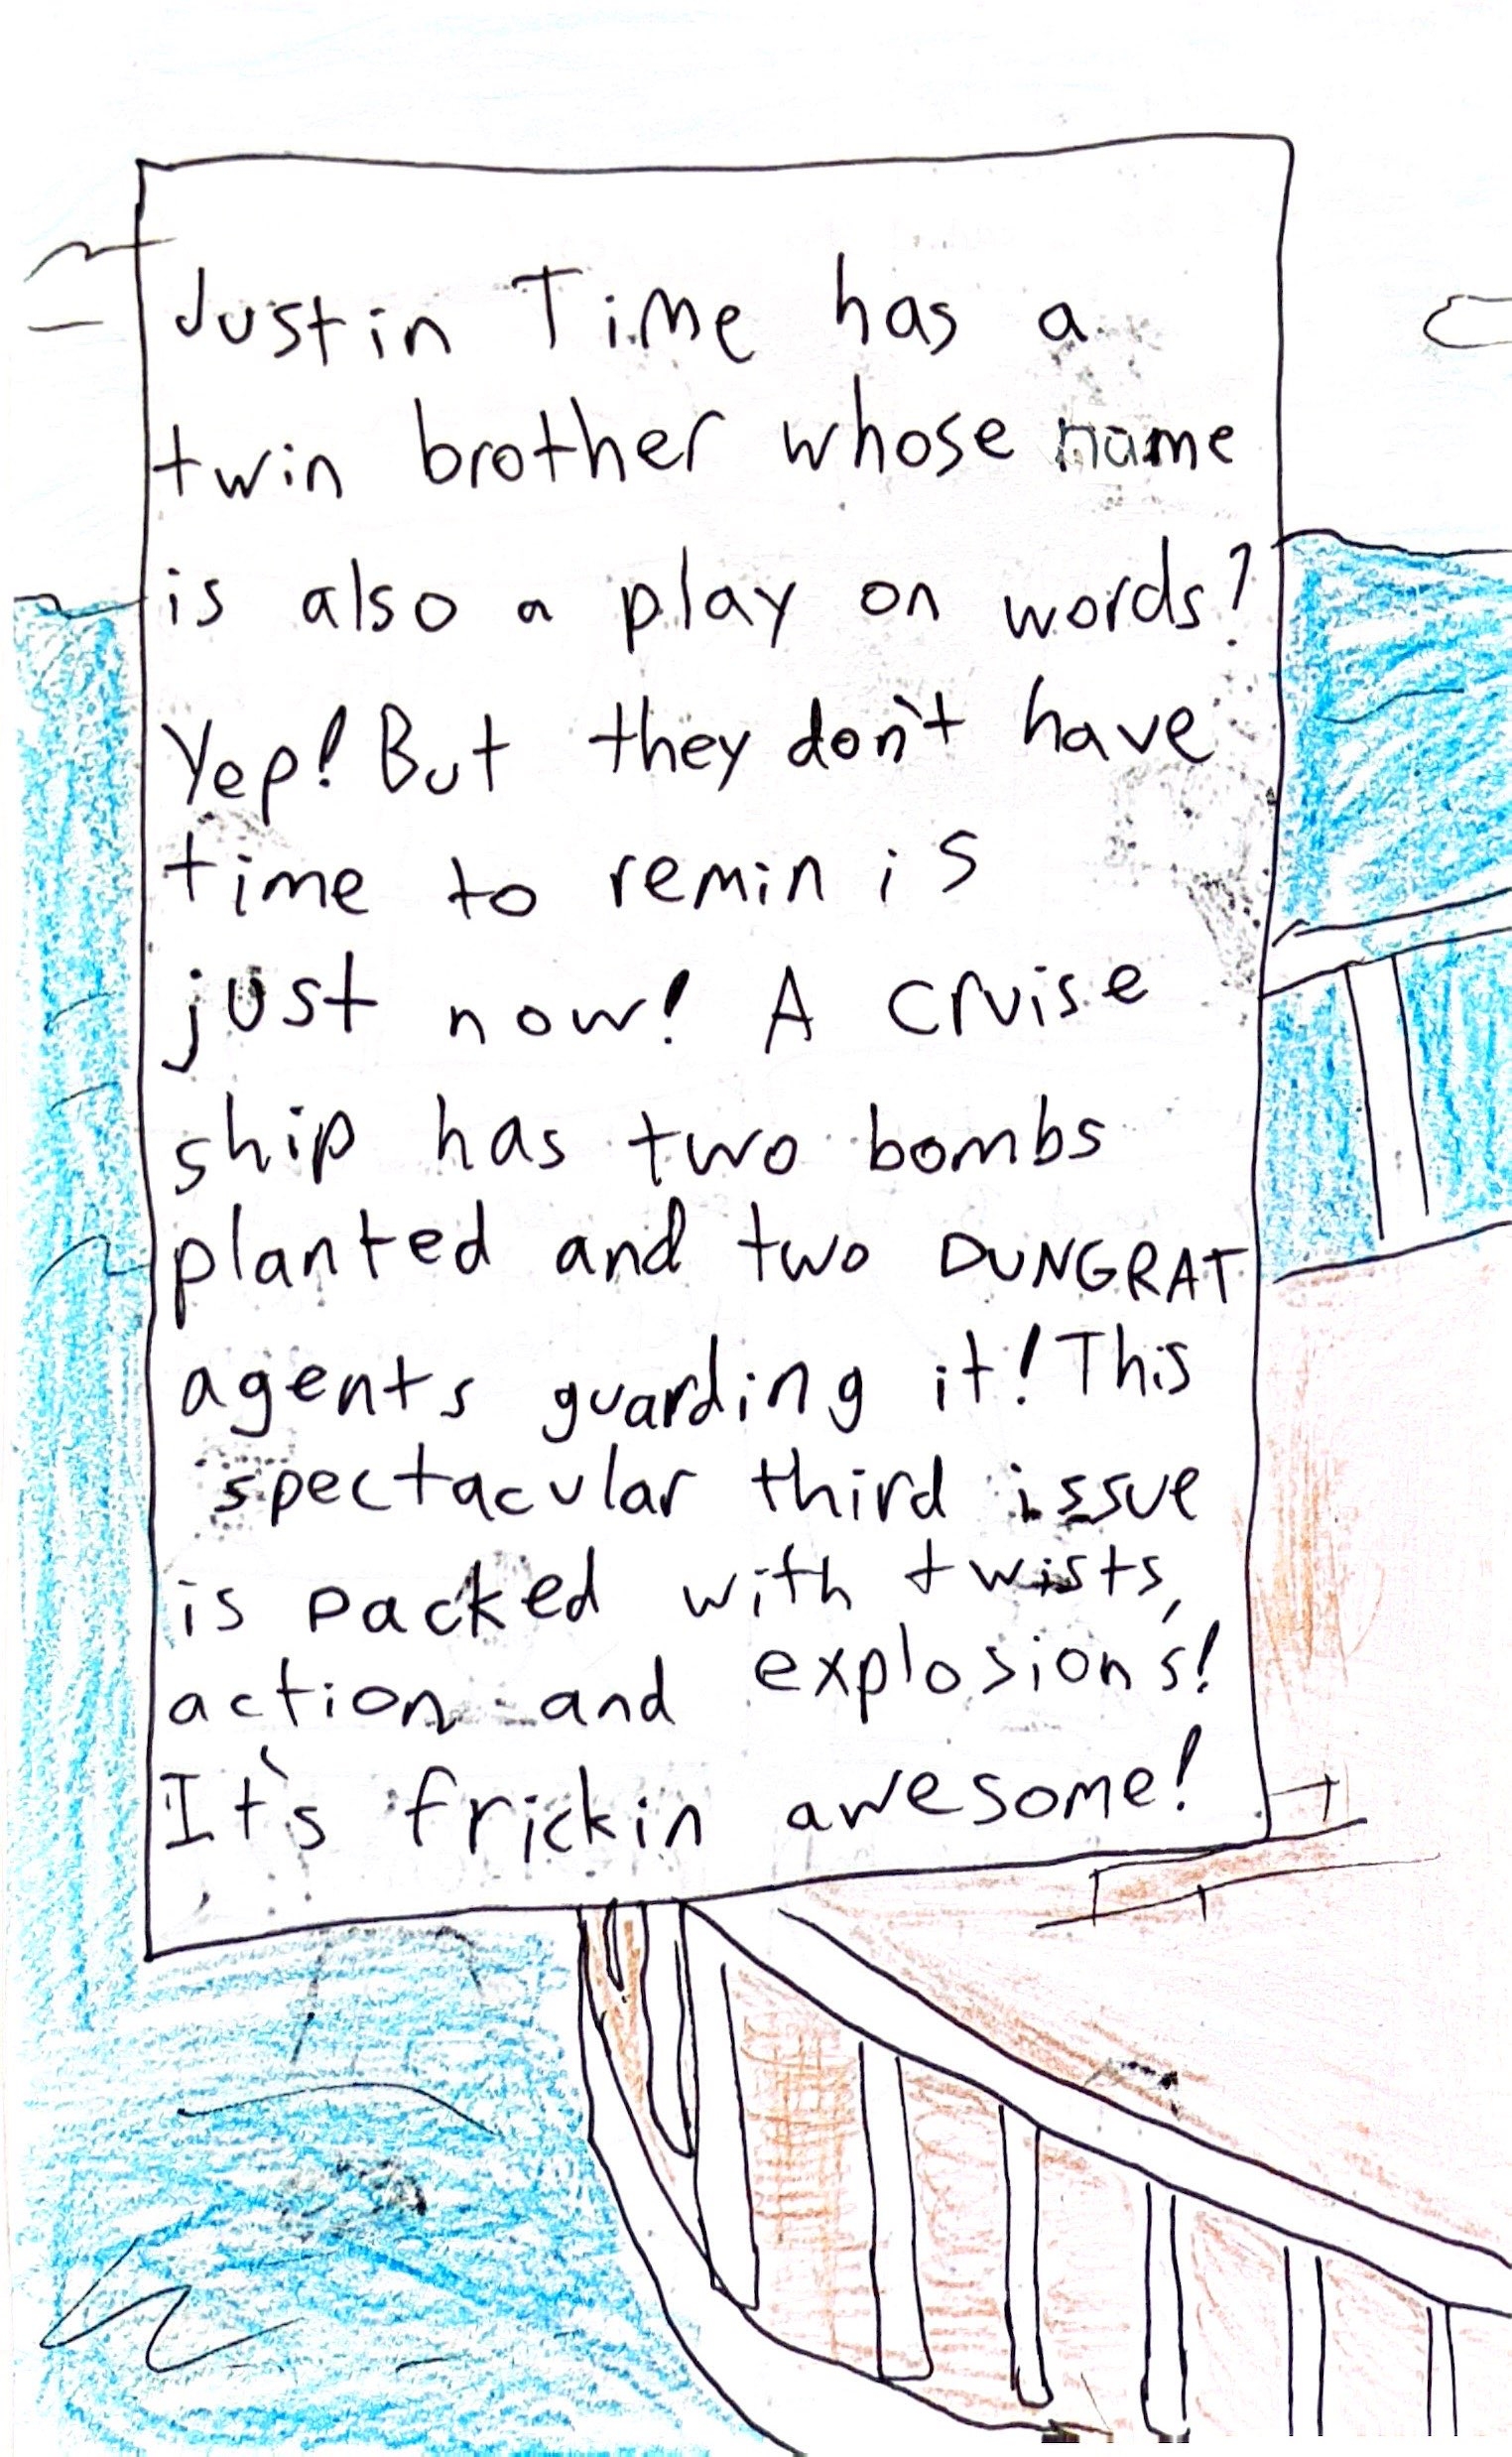 Justin Time has a
twin brother whose name
is also a play on words?
Yep! But they don't have
time to reminis
just now! A cruise
ship has two bombs
planted and two DUNGRAT
agents guarding it! This
spectacular third issue
is packed with twists,
action and explosions!
It's frickin awesome!